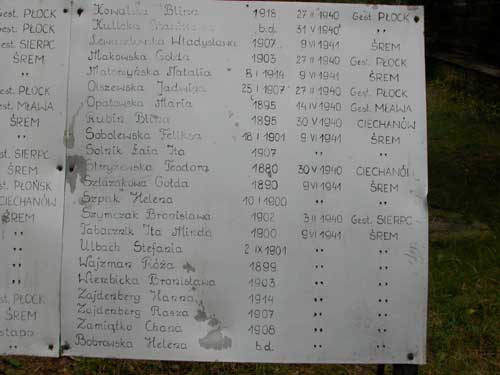 est. PŁOCK Kowalska Blima 1918 27 II 1940 Gest. PŁOCK
est. PŁOCK Kulicka b.d. 31 V 1940 "
est. SIERPC Lewaszkiewicz Władysława 1907 9 VI 1941 ŚREM
ŚREM Makowska Gołda 1903 27 II 1940 Gest. PŁOCK
" Matczyńska Natalia 8 I 1914 9 VI 1941 ŚREM
est. PŁOCK Olszewska Jadwiga 25 I 1907 27 II 1940 Gest. PŁOCK
est. MŁAWA Opatowska Maria 1895 14 IV 1940 Gest. MŁAWA
ŚREM Rubin Blima 1895 30 V 1940 CIECHANÓW
" Sobolewska Feliksa 18 I 1901 9 VI 1941 ŚREM
" Solnik Łaia Ita 1907 " "
est. SIERPC Stryżewska Teodora 1880 30 V 1940 CIECHANÓW
ŚREM Szlazakowa Gołda 1890 9 VI 1941 ŚREM
est. PŁOŃSK Szpak Helena 10 I 1900 " "
CIECHANÓW Szymczak Bronisława 1902 3 II 1940 Gest. SIERPC
ŚREM Tabacznik Ita Minda 1900 9 VI 1941 ŚREM
" Ulbach Stefania 2 IX 1901 " "
" Wajzman Róża 1899 " "
" Wierzbicka Bronisława 1903 " "
est. PŁOCK Zajdenberg Hanna 1914 " "
ŚREM Zajdenberg Masza 1907 " "
stapo Zamiątko Chana 1908 " "
Bobrowska Helena b.d. " "